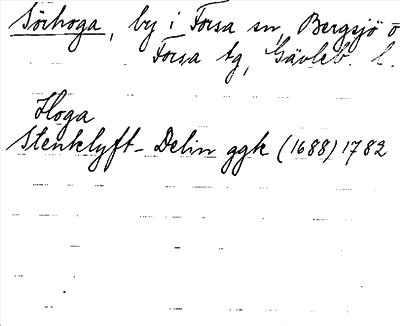 Sörhoga, by i Forsa sn, Bergsjö o
Forsa tg, Gävleb. l.
Hoga
Stenklyft - Delin ggk (1688) 1782